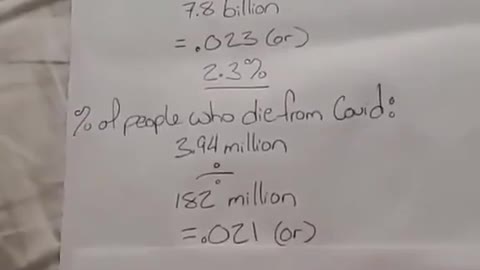 7.8 billion
= .023 (or)
2.3%
% of people who die from Covid:
3.94 million
÷
182 million
= .021 (or)